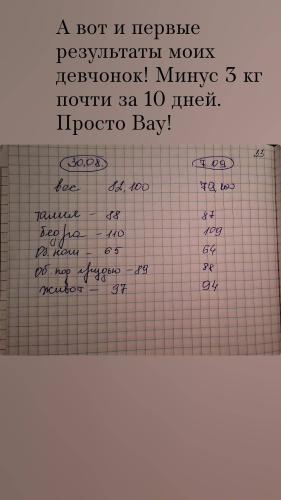 А вот и первые
результаты моих
девчонок! Минус 3 кг
почти за 10 дней.
Просто Вау!
23
30.08 7.09
вес 82,100 79,200
талия - 88 87
бедра - 110 109
Об. ноги - 65 64
Об. под грудью - 89 88
живот - 97 94